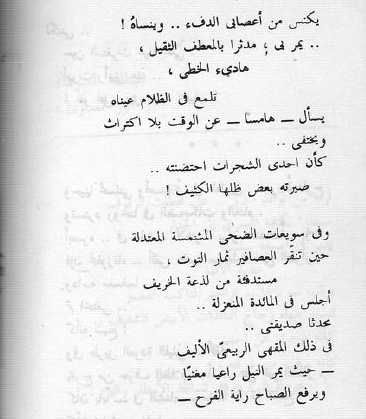 يكنس من أعصابى الدفء .. وينساهُ !
.. يمر بى ؛ مدثرا بالمعطف الثقيل ،
هاديء الخطى ،
تلمع فى الظلام عيناه
يسأل ــ هامسا ــ عن الوقت بلا اكتراث
ويختفى ..
كأن احدى الشجرات احتضنته ..
صيرته بعض ظلها الكثيف !
وفى سويعات الضحى المشمسة المعتدلة
حين تنقّر العصافير ثمار التوت ،
مستدفئة من لذعة الخريف
أجلس فى المائدة المنعزلة ..
محدثا صديقتى ..
فى ذلك المقهى الربيعىّ الأليف
ــ حيث يمر النيل راعيا مغنيّا
ويرفع الصباح راية الفرح ــ